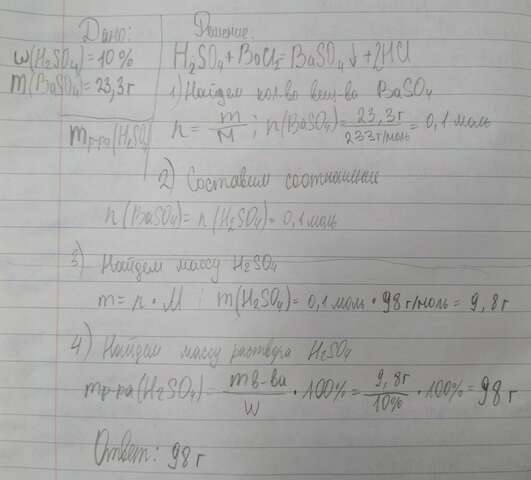 Дано:
w(H₂SO₄)=10%
m(BaSO₄)=23,3г
mр-ра(H₂SO₄)
Решение:
H₂SO₄+BaCl₂=BaSO₄↓+2HCl
1) Найдем кол.во вещ-ва BaSO₄
n = m/M ; n(BaSO₄)= 23,3г/233г/моль = 0,1 моль
2) Составим соотношение
n(BaSO₄)= n(H₂SO₄)=0,1моль
3) Найдем массу H₂SO₄
m=n·M ; m(H₂SO₄)= 0,1 моль · 98 г/моль = 9,8г
4) Найдем массу раствора H₂SO₄
mр-ра(H₂SO₄)= mв-ва/W · 100% = 9,8г/10% · 100% = 98 г
Ответ: 98 г